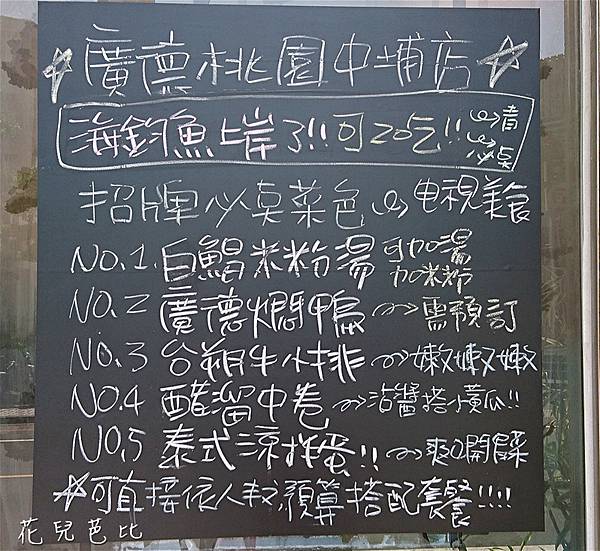 ☆廣德桃園中埔店☆
海釣魚上岸了!!可2吃!!
必桌
招牌必桌菜色 电視美食
NO.1 白鯧米粉湯 可加湯
加米粉
NO.2 廣德燜鴨 需預訂
NO.3 台朔牛小排 嫩嫩嫩
NO.4 醋溜中卷 沾醬搭小黃瓜!!
NO.5 泰式涼拌蛋!! 爽口開餐
☆可直接依人數預算搭配套餐!!!!
花兒芭比